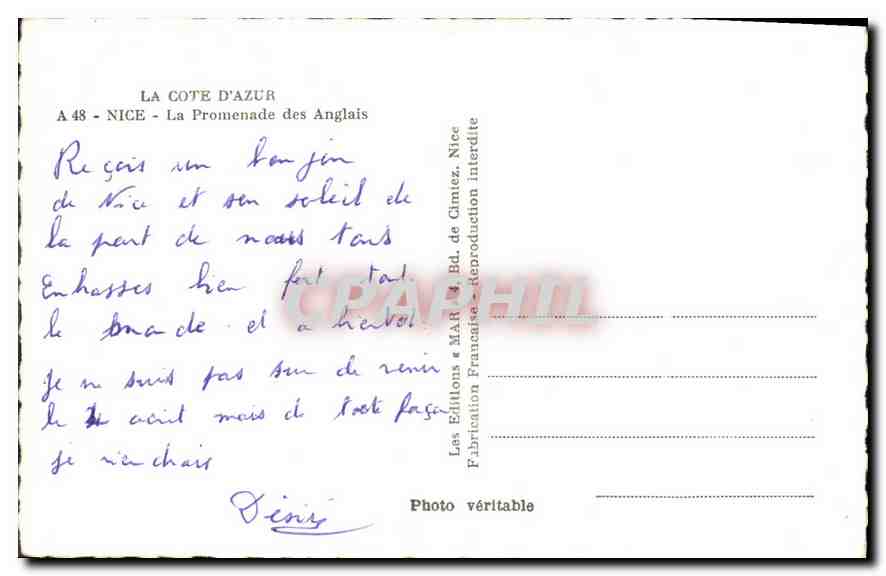 LA COTE D'AZUR
A 48 - NICE - La Promenade des Anglais
Reçois un bon jour
de Nice et son soleil de
la part de nous tous
Embrasses bien fort tout
le monde et a bientot.
Je ne suis pas sur de venir
le août mais de toute façon
je
Les Editions « MAR 4, Bd. de Cimiez, Nice
Fabrication Française - Reproduction interdite
CPAPHIL
Photo véritable